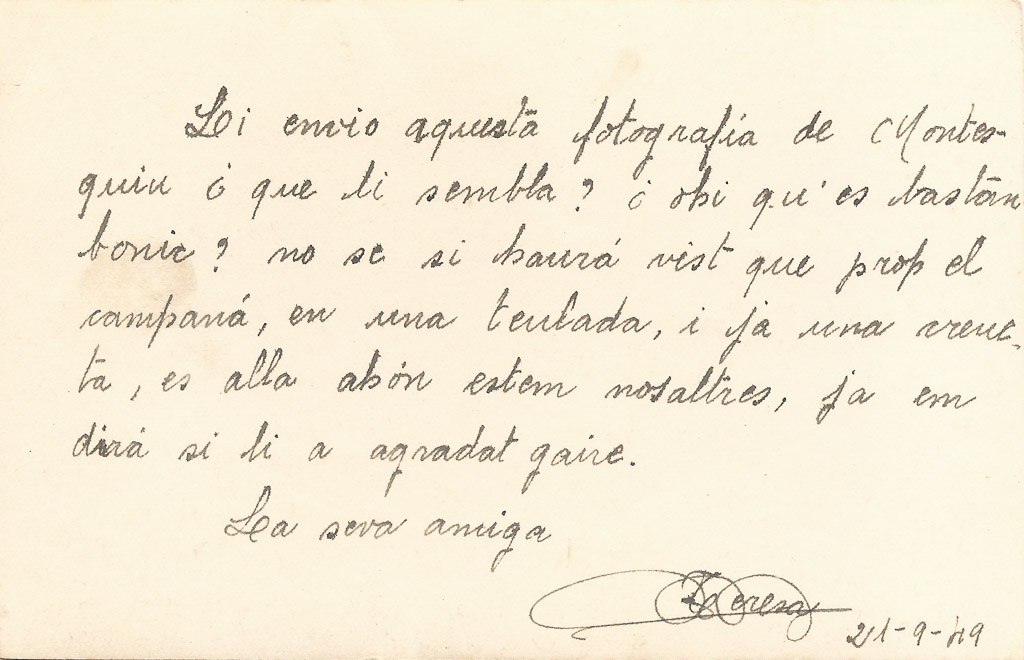 Li envio aquesta fotografía de Montes-
quiu ¿ que li sembla? ¿ ohi qu'es bastán
bonic? no se si haurá vist que prop el
campaná, en una teulada, i ja una creue-
ta, es alla ahón estem nosaltres, ja em
dirá si li a agradat gaire.
La seva amiga
Teresa
21-9-49